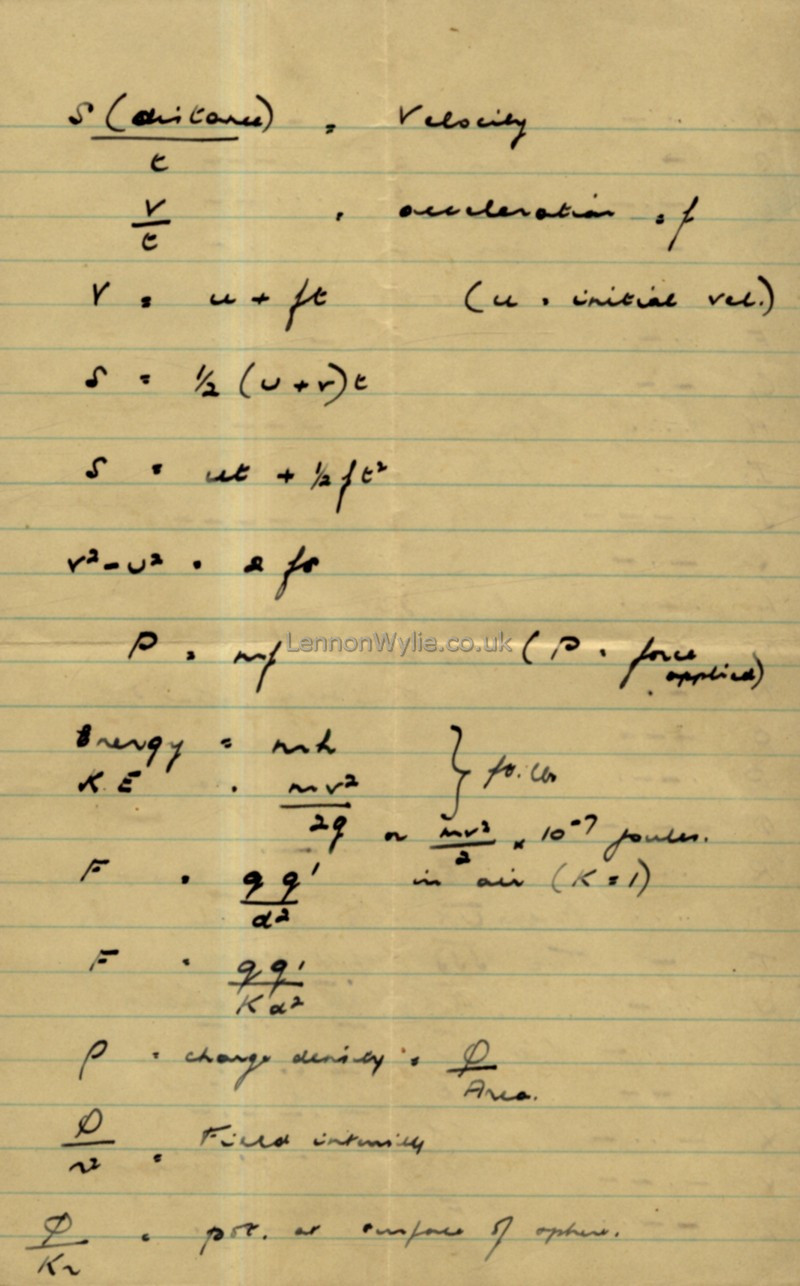 S (distance) / t = Velocity
v / t = acceleration = f
V = u + ft (u = initial vel.)
S = 1/2 (u + v) t
S = ut + 1/2 ft²
v² - u² = 2 fs
P = mf (P = force applied)
LennonWylie.co.uk
Energy = mh
KE = mv² / 2g } ft. lbs
or mv² / 2 × 10⁻⁷ joules.
F = q q' / d² in air (K = 1)
F = q q' / K d²
ρ = charge density = Q / Area.
Q / r² = Field intensity
Q / Kr = pot. at surface of sphere.